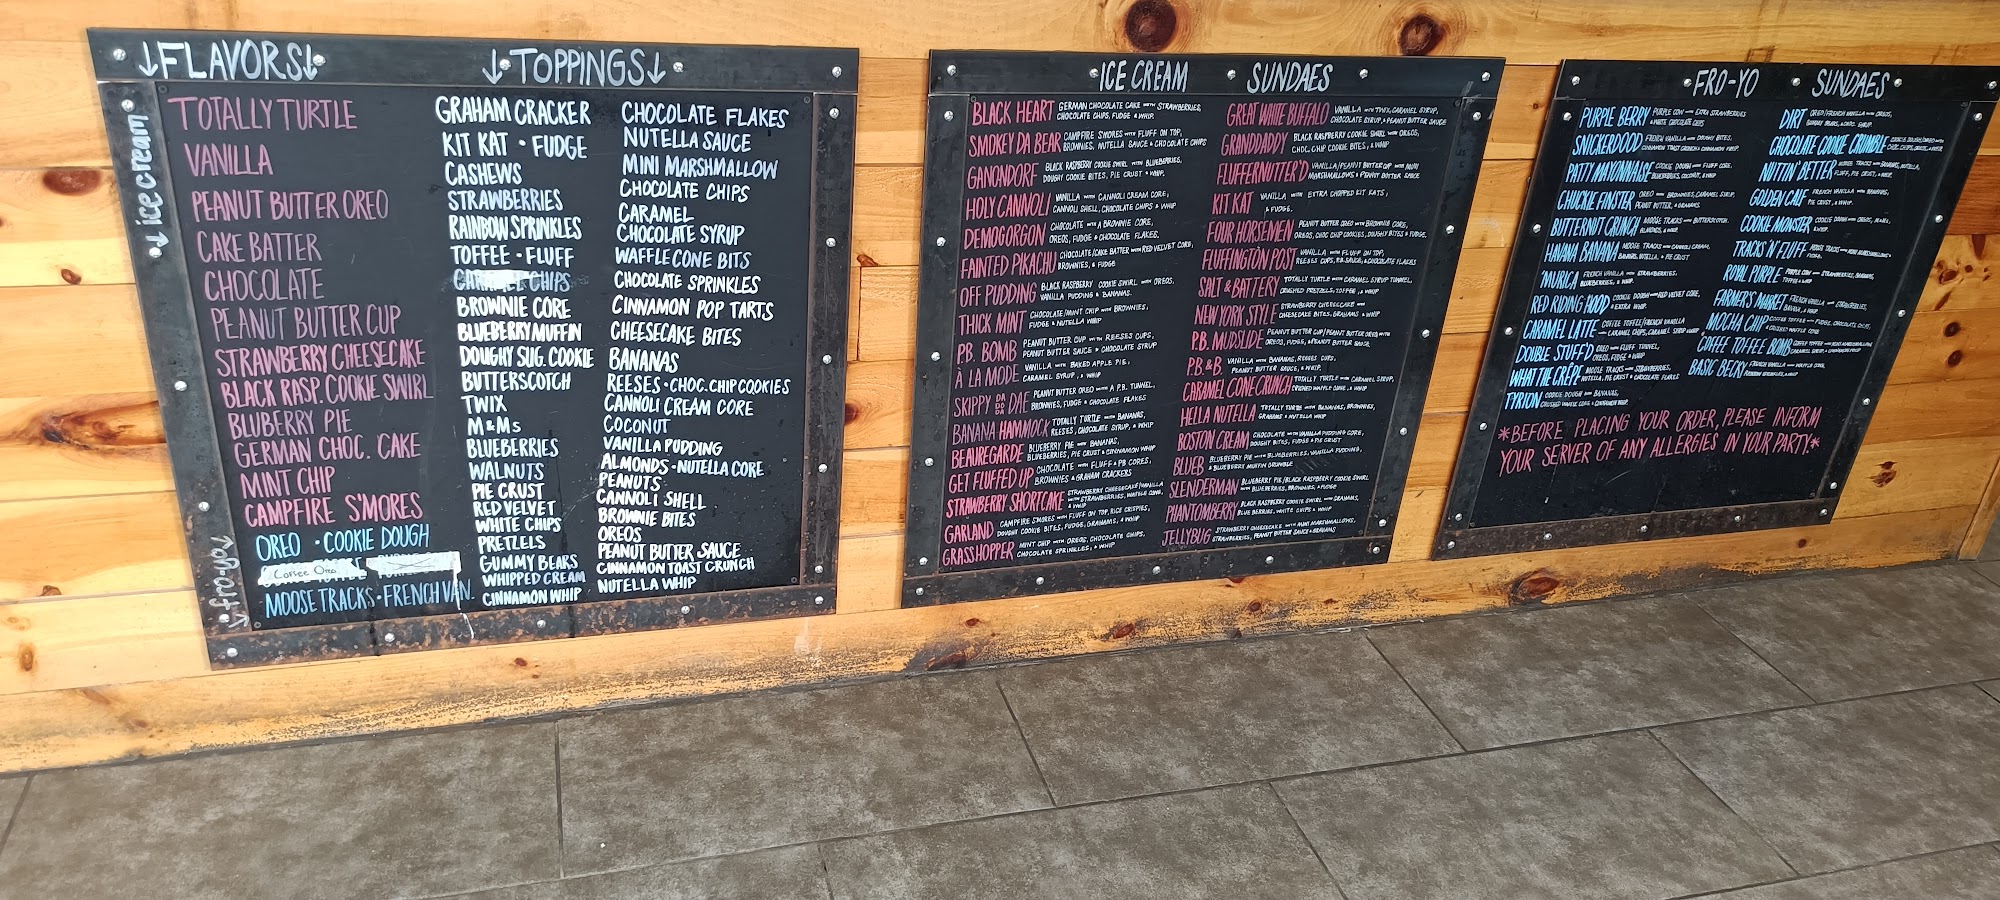 ↓FLAVORS↓
↓TOPPINGS↓
↓ice cream↓
TOTALLY TURTLE
VANILLA
PEANUT BUTTER OREO
CAKE BATTER
CHOCOLATE
PEANUT BUTTER CUP
STRAWBERRY CHEESECAKE
BLACK RASP. COOKIE SWIRL
BLUBERRY PIE
GERMAN CHOC. CAKE
MINT CHIP
CAMPFIRE S'MORES
↓fro-yo↓
OREO • COOKIE DOUGH
Coffee Oreo
MOOSE TRACKS • FRENCH VAN.
GRAHAM CRACKER
KIT KAT • FUDGE
CASHEWS
STRAWBERRIES
RAINBOW SPRINKLES
TOFFEE - FLUFF
CHIPS
BROWNIE CORE
BLUEBERRY MUFFIN
DOUGHY SUG. COOKIE
BUTTERSCOTCH
TWIX
M&Ms
BLUEBERRIES
WALNUTS
PIE CRUST
RED VELVET
WHITE CHIPS
PRETZELS
GUMMY BEARS
WHIPPED CREAM
CINNAMON WHIP
CHOCOLATE FLAKES
NUTELLA SAUCE
MINI MARSHMALLOW
CHOCOLATE CHIPS
CARAMEL
CHOCOLATE SYRUP
WAFFLE CONE BITS
CHOCOLATE SPRINKLES
CINNAMON POP TARTS
CHEESECAKE BITES
BANANAS
REESES • CHOC. CHIP COOKIES
CANNOLI CREAM CORE
COCONUT
VANILLA PUDDING
ALMONDS • NUTELLA CORE
PEANUTS
CANNOLI SHELL
BROWNIE BITES
OREOS
PEANUT BUTTER SAUCE
CINNAMON TOAST CRUNCH
NUTELLA WHIP
ICE CREAM SUNDAES
BLACK HEART GERMAN CHOCOLATE CAKE WITH STRAWBERRIES,
CHOCOLATE CHIPS, FUDGE & WHIP.
SMOKEY DA BEAR CAMPFIRE SMORES WITH FLUFF ON TOP,
BROWNIES, NUTELLA SAUCE & CHOCOLATE CHIPS
GANONDORF BLACK RASPBERRY COOKIE SWIRL WITH BLUEBERRIES,
DOUGHY COOKIE BITES, PIE CRUST & WHIP.
HOLY CANNOLI VANILLA WITH CANNOLI CREAM CORE,
CANNOLI SHELL, CHOCOLATE CHIPS & WHIP
DEMOGORGON CHOCOLATE WITH A BROWNIE CORE,
OREOS, FUDGE & CHOCOLATE FLAKES.
FAINTED PIKACHU CHOCOLATE/CAKE BATTER WITH RED VELVET CORE,
BROWNIES, & FUDGE
OFF PUDDING BLACK RASPBERRY COOKIE SWIRL WITH OREOS,
VANILLA PUDDING & BANANAS.
THICK MINT CHOCOLATE/MINT CHIP WITH BROWNIES,
FUDGE & NUTELLA WHIP
P.B. BOMB PEANUT BUTTER CUP WITH REESES CUPS,
PEANUT BUTTER SAUCE & CHOCOLATE SYRUP
À LA MODE VANILLA WITH BAKED APPLE PIE,
CARAMEL SYRUP, & WHIP
SKIPPY DA DD DA DAE PEANUT BUTTER OREO WITH A P.B. TUNNEL,
BROWNIES, FUDGE & CHOCOLATE FLAKES
BANANA HAMMOCK TOTALLY TURTLE WITH BANANAS,
REESES, CHOCOLATE SYRUP, & WHIP
BEAUREGARDE BLUEBERRY PIE WITH BANANAS,
BLUEBERRIES, PIE CRUST & CINNAMON WHIP
GET FLUFFED UP CHOCOLATE WITH FLUFF & PB CORES,
BROWNIES & GRAHAM CRACKERS
STRAWBERRY SHORTCAKE STRAWBERRY CHEESECAKE/VANILLA
WITH STRAWBERRIES, WAFFLE CONE, & WHIP
GARLAND CAMPFIRE SMORES WITH FLUFF ON TOP, RICE CRISPIES,
DOUGHY COOKIE BITES, FUDGE, GRAHAMS, & WHIP
GRASSHOPPER MINT CHIP WITH OREOS, CHOCOLATE CHIPS,
CHOCOLATE SPRINKLES, & WHIP
GREAT WHITE BUFFALO VANILLA WITH TWIX, CARAMEL SYRUP,
CHOCOLATE SYRUP, & PEANUT BUTTER SAUCE
GRANDDADDY BLACK RASPBERRY COOKIE SWIRL WITH OREOS,
CHOC. CHIP COOKIE BITES, & WHIP
FLUFFERNUTTER'D VANILLA/PEANUT BUTTER CUP WITH MINI
MARSHMALLOWS & PEANUT BUTTER SAUCE
KIT KAT VANILLA WITH EXTRA CHOPPED KIT KATS,
& FUDGE.
FOUR HORSEMEN PEANUT BUTTER OREO WITH BROWNIE CORE,
OREOS, CHOC CHIP COOKIES, DOUGHY BITES & FUDGE.
FLUFFINGTON POST VANILLA WITH FLUFF ON TOP,
REESES CUPS, P.B. SAUCE, & CHOCOLATE FLAKES
SALT & BATTERY TOTALLY TURTLE WITH CARAMEL SYRUP TUNNEL,
CRUSHED PRETZELS, TOFFEE, & WHIP
NEW YORK STYLE STRAWBERRY CHEESECAKE WITH
CHEESECAKE BITES, GRAHAMS & WHIP
P.B. MUDSLIDE PEANUT BUTTER CUP/PEANUT BUTTER OREO WITH
OREOS, FUDGE, & PEANUT BUTTER SAUCE.
P.B. & B. VANILLA WITH BANANAS, REESES CUPS,
PEANUT BUTTER SAUCE, & WHIP.
CARAMEL CONE CRUNCH TOTALLY TURTLE WITH CARAMEL SYRUP,
CRUSHED WAFFLE CONE & WHIP
HELLA NUTELLA TOTALLY TURTLE WITH BANANAS, BROWNIES,
GRAHAMS & NUTELLA WHIP
BOSTON CREAM CHOCOLATE WITH VANILLA PUDDING CORE,
DOUGHY BITES, FUDGE & PIE CRUST
BLUEB BLUEBERRY PIE WITH BLUEBERRIES, VANILLA PUDDING,
& BLUEBERRY MUFFIN CRUMBLE
SLENDERMAN BLUEBERRY PIE/BLACK RASPBERRY COOKIE SWIRL
WITH BLUEBERRIES, BROWNIES, & FUDGE
PHANTOMBERRY BLACK RASPBERRY COOKIE SWIRL WITH GRAHAMS,
BLUEBERRIES, WHITE CHIPS & WHIP
JELLYBUG STRAWBERRY CHEESECAKE WITH MINI MARSHMALLOWS,
STRAWBERRIES, PEANUT BUTTER SAUCE & GRAHAMS
FRO-YO SUNDAES
PURPLE BERRY PURPLE COW WITH EXTRA STRAWBERRIES
& WHITE CHOCOLATE CHIPS
SNICKERDOOD FRENCH VANILLA WITH DOUGHY BITES,
CINNAMON TOAST CRUNCH & CINNAMON WHIP.
PATTY MAYONNAISE COOKIE DOUGH WITH FLUFF CORE,
BLUEBERRIES, COCONUT, & WHIP
CHUCKIE FINSTER OREO WITH BROWNIES, CARAMEL SYRUP,
PEANUT BUTTER, & GRAHAMS
BUTTERNUT CRUNCH MOOSE TRACKS WITH BUTTERSCOTCH,
ALMONDS, & WHIP
HAVANA BANANA MOOSE TRACKS WITH CANNOLI CREAM,
BANANAS, NUTELLA, & PIE CRUST
'MURICA FRENCH VANILLA WITH STRAWBERRIES,
BLUEBERRIES, & WHIP
RED RIDING HOOD COOKIE DOUGH WITH RED VELVET CORE,
& EXTRA WHIP.
CARAMEL LATTE COFFEE TOFFEE/FRENCH VANILLA
WITH CARAMEL CHIPS, CARAMEL SYRUP & WHIP
DOUBLE STUFF'D OREO WITH FLUFF TUNNEL,
OREOS, FUDGE & WHIP
WHAT THE CRÊPE MOOSE TRACKS WITH STRAWBERRIES,
NUTELLA, PIE CRUST & CHOCOLATE FLAKES
TYRION COOKIE DOUGH WITH BANANAS,
CRUSHED WAFFLE CONE & CINNAMON WHIP
DIRT OREO/FRENCH VANILLA WITH OREOS,
GUMMY BEARS, & CHOC. SYRUP
CHOCOLATE COOKIE CRUMBLE
NUTTIN' BETTER MOOSE TRACKS WITH BANANAS, NUTELLA,
FLUFF, PIE CRUST, & WHIP.
GOLDEN CALF FRENCH VANILLA WITH BANANAS,
PIE CRUST, & WHIP
COOKIE MONSTER COOKIE DOUGH WITH OREOS,
& WHIP.
TRACKS 'N' FLUFF MOOSE TRACKS WITH
ROYAL PURPLE PURPLE COW WITH STRAWBERRIES, BANANAS,
TOFFEE & WHIP
FARMER'S MARKET FRENCH VANILLA WITH STRAWBERRIES,
BANANAS, & WHIP
MOCHA CHIP COFFEE TOFFEE WITH FUDGE, CHOCOLATE CHIPS,
& CRUSHED WAFFLE CONE
COFFEE TOFFEE BOMB COFFEE TOFFEE WITH
CARAMEL SYRUP, & CINNAMON WHIP
BASIC BECKY FRENCH VANILLA WITH WAFFLE CONE,
RAINBOW SPRINKLES, & WHIP
*BEFORE PLACING YOUR ORDER, PLEASE INFORM
YOUR SERVER OF ANY ALLERGIES IN YOUR PARTY.*